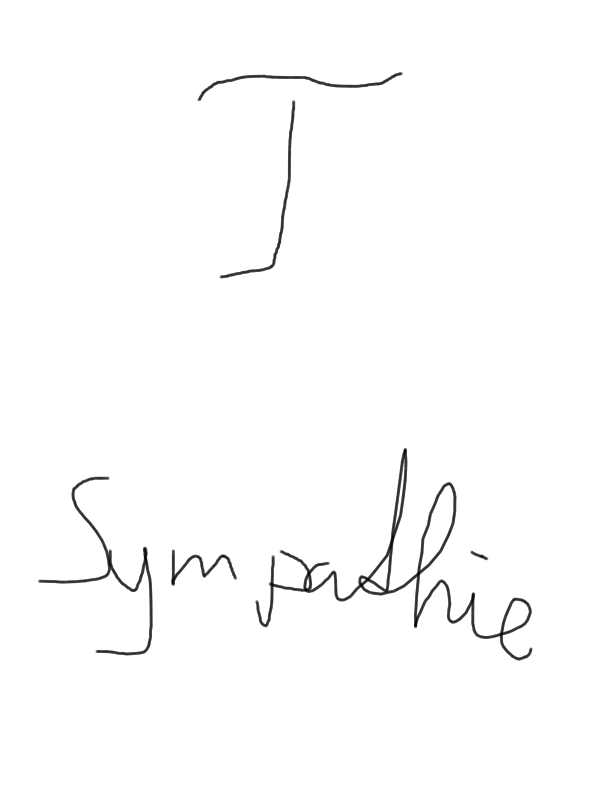 T
Sympathie